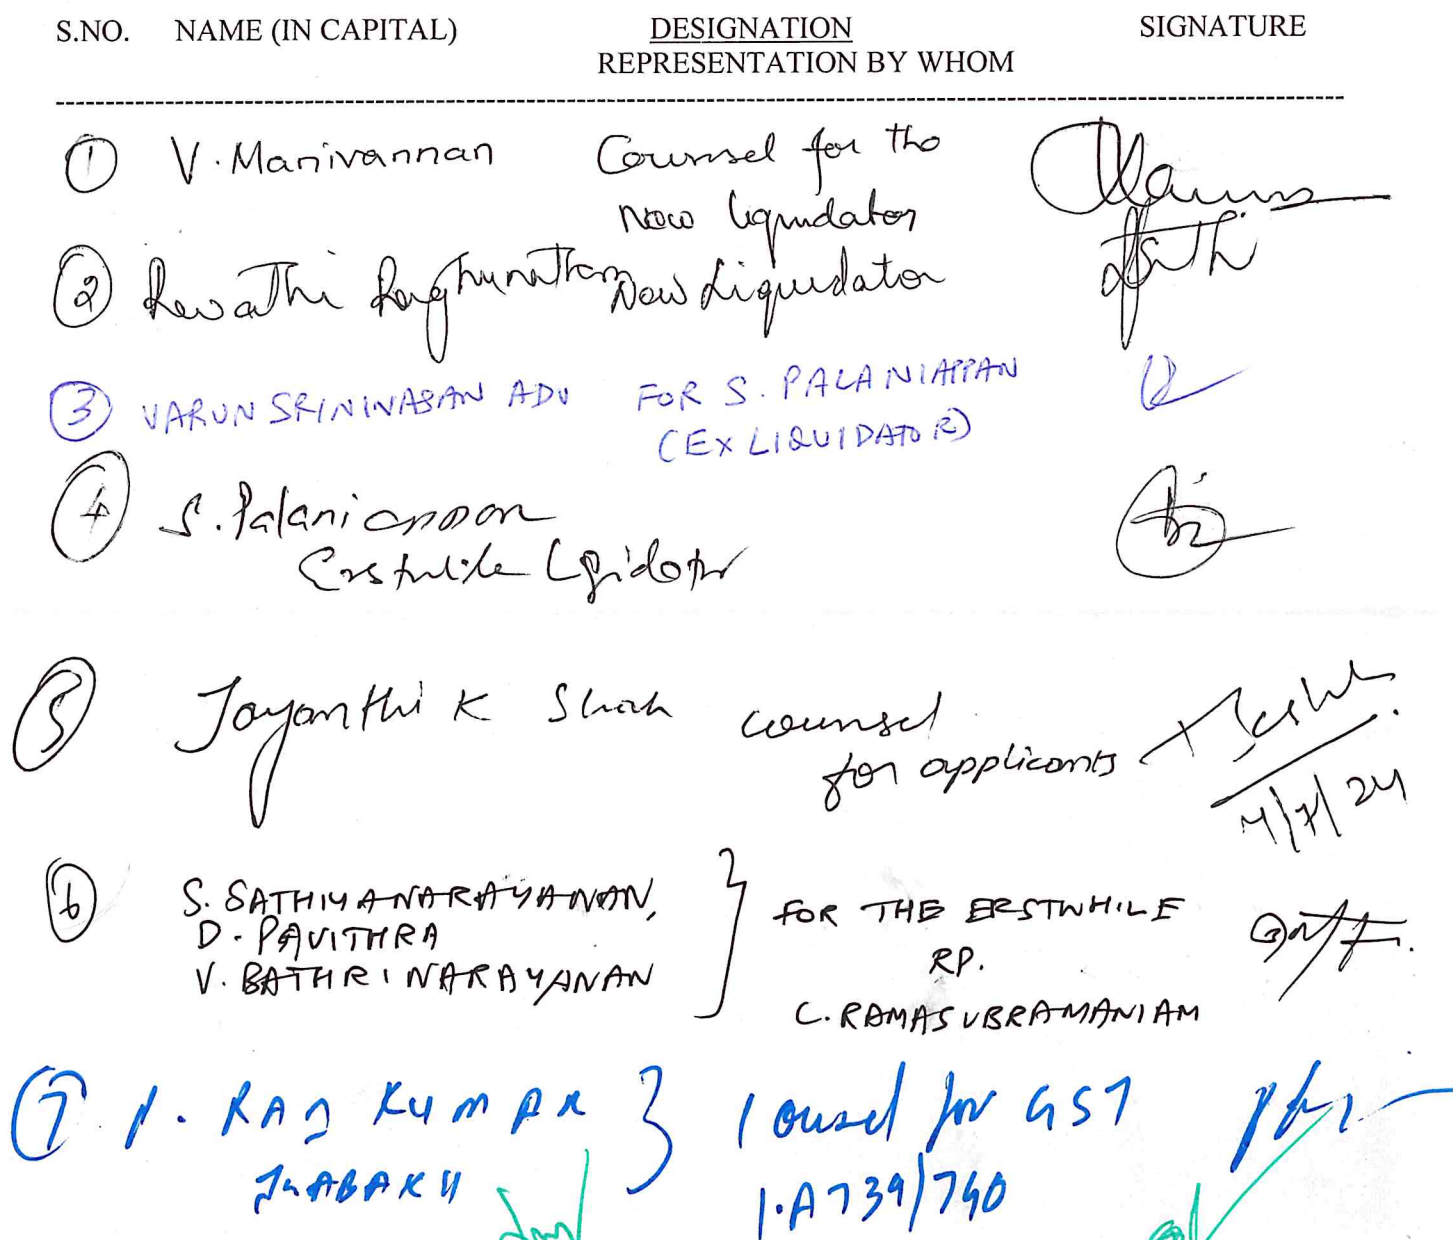 S.NO. NAME (IN CAPITAL) DESIGNATION SIGNATURE
REPRESENTATION BY WHOM
1 V. Manivannan Counsel for the
New liquidator
2 Revathi Raghunathan New Liquidator
3 VARUN SRINIVASAN ADV FOR S. PALANIAPPAN
(EX LIQUIDATOR)
4 S. Palaniappan
Erstwhile Liquidator
5 Jayanthi K Shah counsel
for applicants
4/7/24
6 S. SATHIYANARAYANAN,
D. PAVITHRA
V. BATHRINARAYANAN
FOR THE ERSTWHILE
RP.
C. RAMASUBRAMANIAM
7 RAJ KUMAR Counsel for GST
JHABAKH I.A 739/740